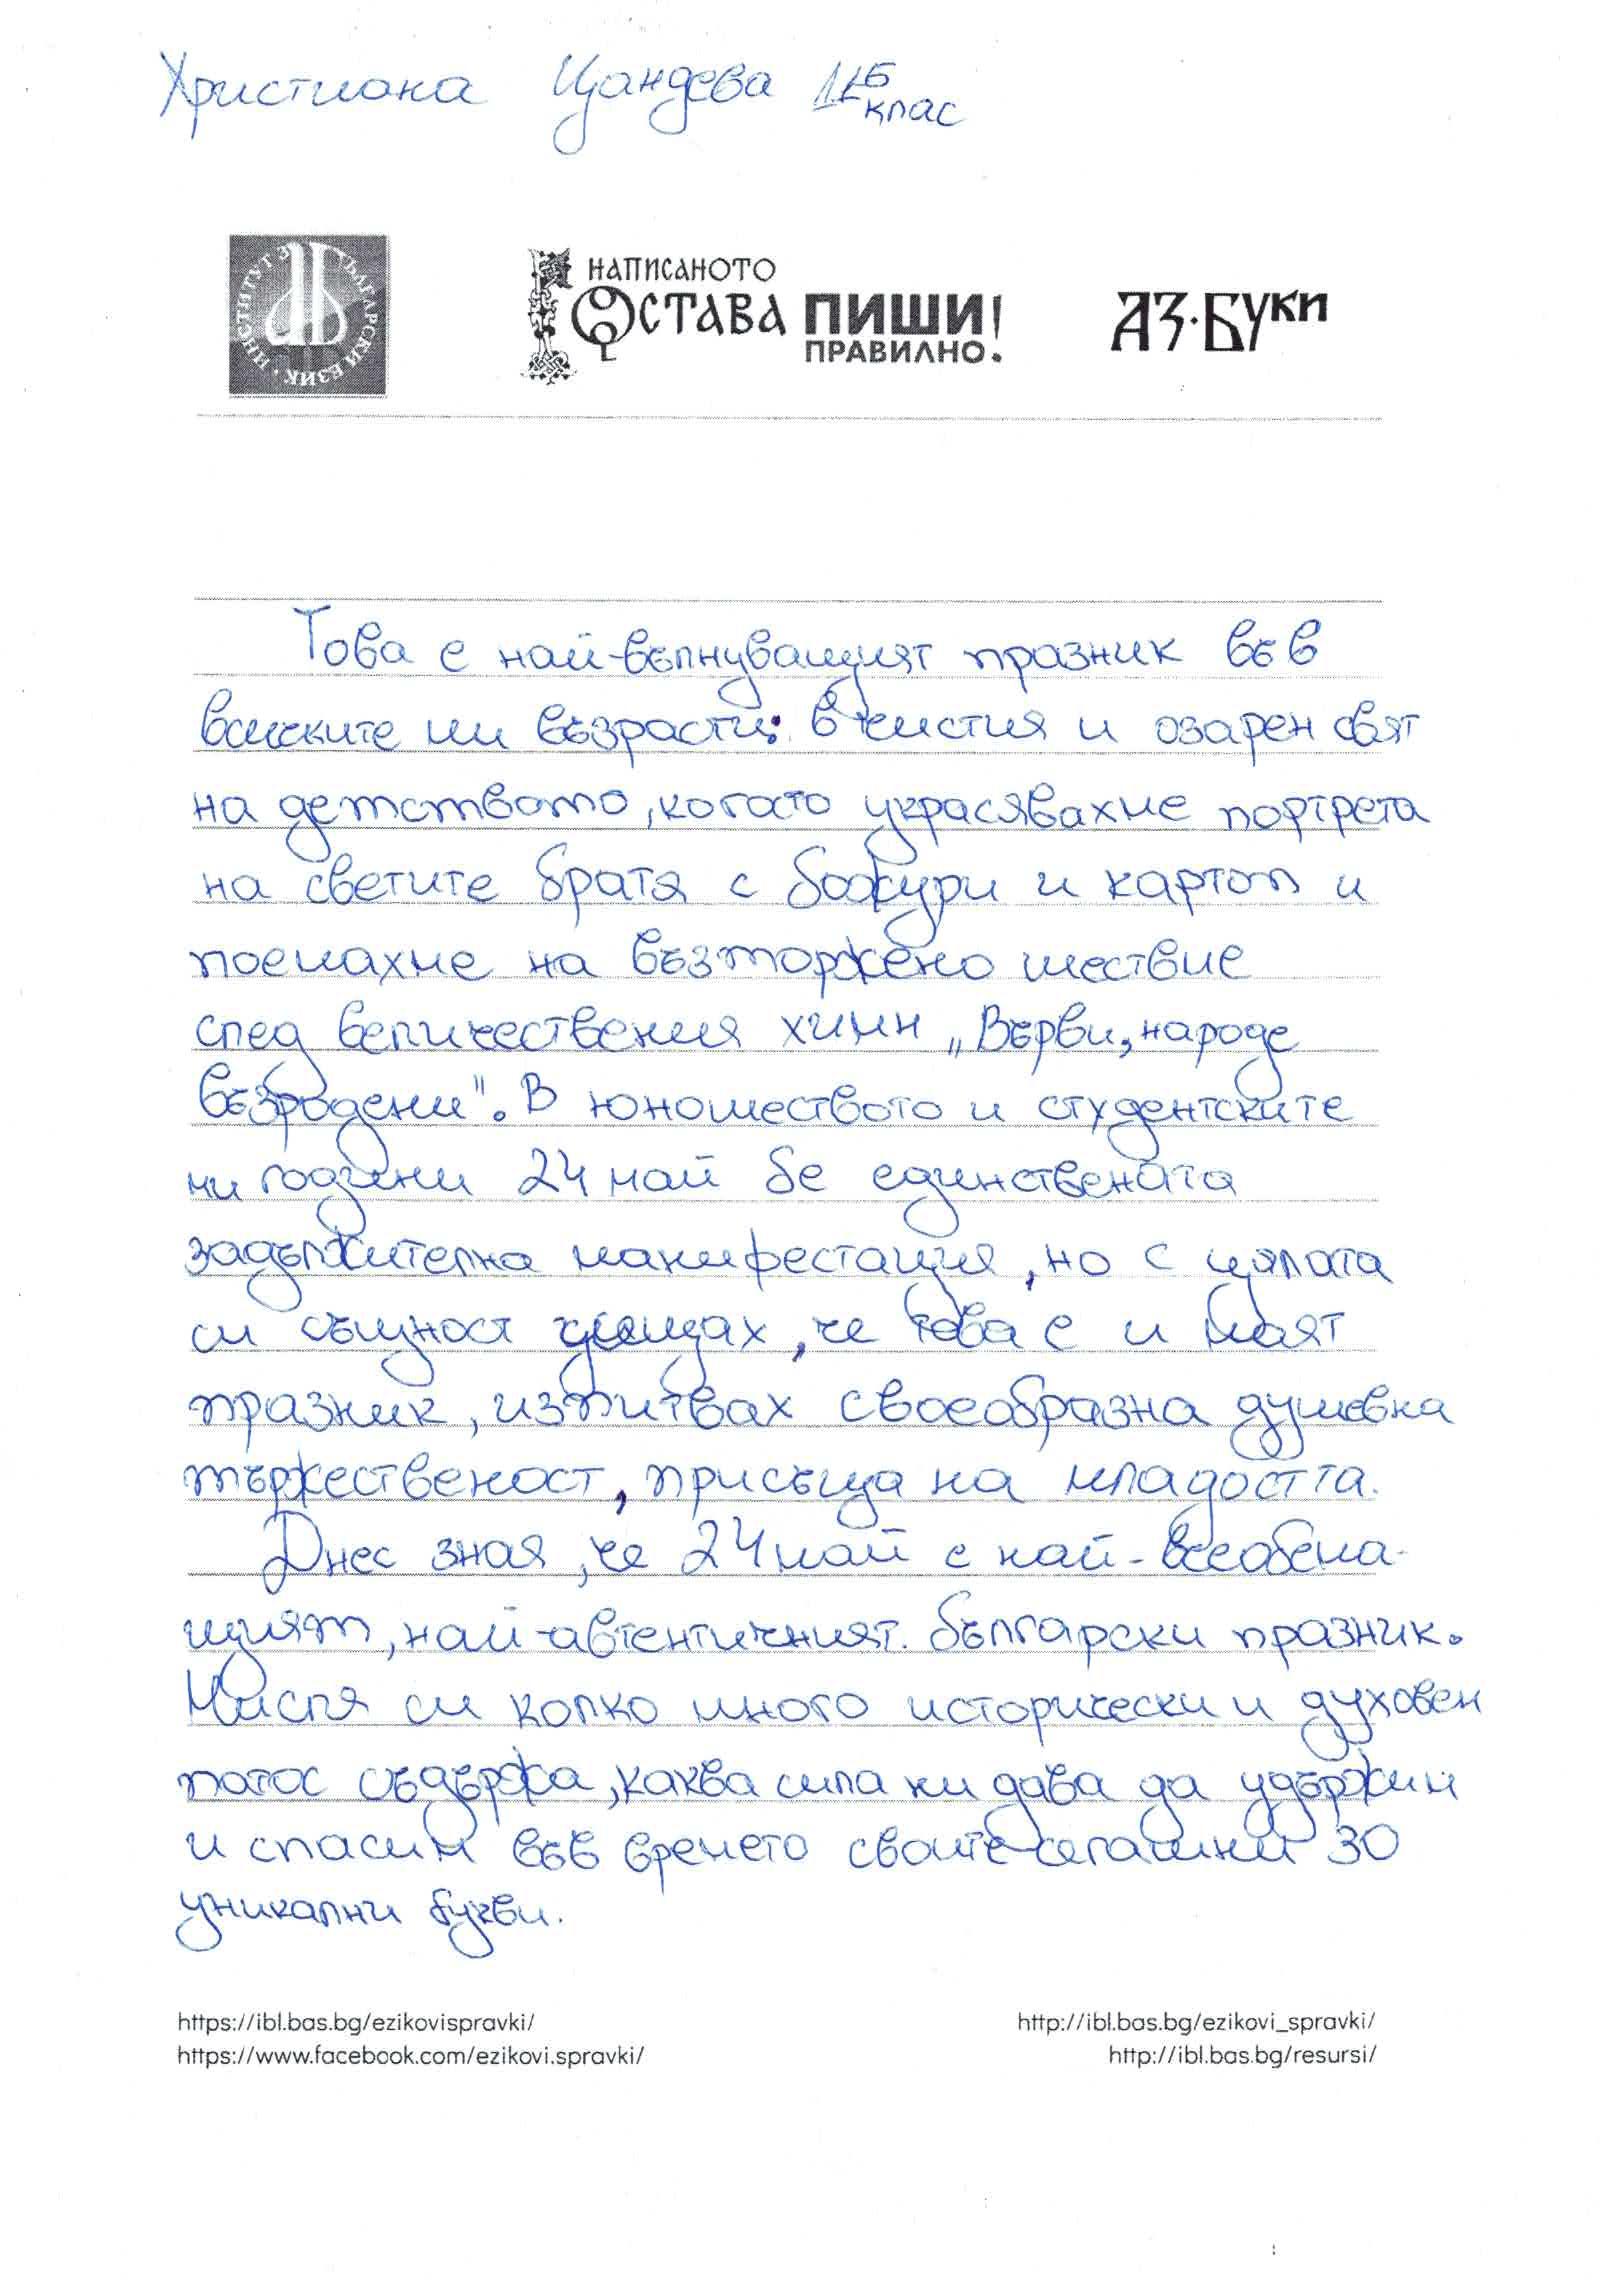 Христиана Цандева 11б
клас
ИНСТИТУТ ЗА БЪЛГАРСКИ ЕЗИК
НАПИСАНОТО
ОСТАВА ПИШИ!
ПРАВИЛНО.
АЗ·БУКИ
Това е най-вълнуващият празник във
всичките ми възрасти: в чистия и озарен свят
на детството, когато украсявахме портрета
на светите братя с божури и картоп и
поемахме на възторжено шествие
след величествения химн „Върви, народе
възродени". В юношеството и студентските
ми години 24 май бе единствената
задължителна манифестация, но с цялата
си същност усещах, че това е и моят
празник, изпитвах своеобразна душевна
тържественост, присъща на младостта.
Днес зная, че 24 май е най-всеобема-
щият, най-автентичният български празник.
Мисля си колко много исторически и духовен
патос съдържа, каква сила ни дава да удържим
и спасим във времето своите сегашни 30
уникални букви.
https://ibl.bas.bg/ezikovispravki/ http://ibl.bas.bg/ezikovi_spravki/
https://www.facebook.com/ezikovi.spravki/ http://ibl.bas.bg/resursi/